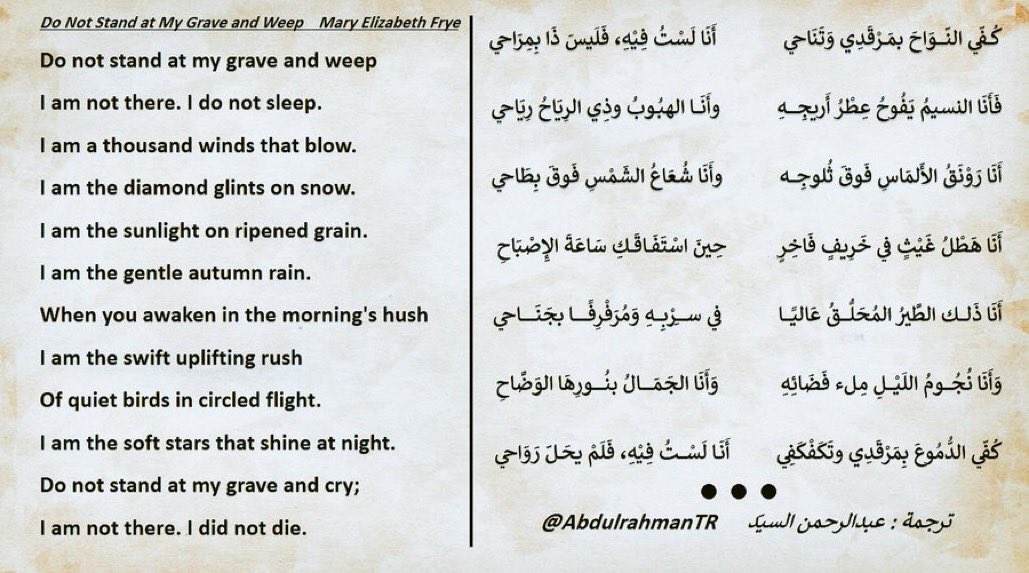 Do Not Stand at My Grave and Weep    Mary Elizabeth Frye
Do not stand at my grave and weep
I am not there. I do not sleep.
I am a thousand winds that blow.
I am the diamond glints on snow.
I am the sunlight on ripened grain.
I am the gentle autumn rain.
When you awaken in the morning's hush
I am the swift uplifting rush
Of quiet birds in circled flight.
I am the soft stars that shine at night.
Do not stand at my grave and cry;
I am not there. I did not die.
كُفِّي النَّــوَاحَ بمَرْقَدِي وَتَنَاحِي    أَنَا لَسْتُ فِيْهِ، فَلَيسَ ذَا بِمِرَاحي
فَأَنَا النسيمُ يَفُوحُ عِطْرُ أَريجِــهِ    وأَنَــا الهبُوبُ وذِي الرِيَاحُ رِيَاحي
أَنَا رَوْنَقُ الأَلمَاسِ فَوقَ ثُلوجِــه    وأَنَا شُعَاعُ الشَّمْسِ فَوقَ بِطَاحي
أَنَا هَطْلُ غَيْثٍ في خَرِيفٍ فَاخِرٍ    حِينَ اسْتَفَاقَــكِ سَاعَةَ الإِصْبَاحِ
أَنَا ذَلــك الطَّيرُ المُحَلِّــقُ عَاليًــا    في ســرْبِــهِ وَمُرَفْرِفًــا بجَنَــاحي
وَأَنَا نُجُــومُ اللَيْــلِ مِلء فَضَائِهِ    وَأَنَا الجَمَــالُ بنُــورِهَا الوَضَّاحِ
كُفِّي الدُّمُوعَ بِمَرْقَدِي وتَكَفْكَفِي    أَنَّا لَسْـتُ فِيْهِ، فَلَمْ يحَلَ رَوَاحي
ترجمة : عبدالرحمن السيد    @AbdulrahmanTR